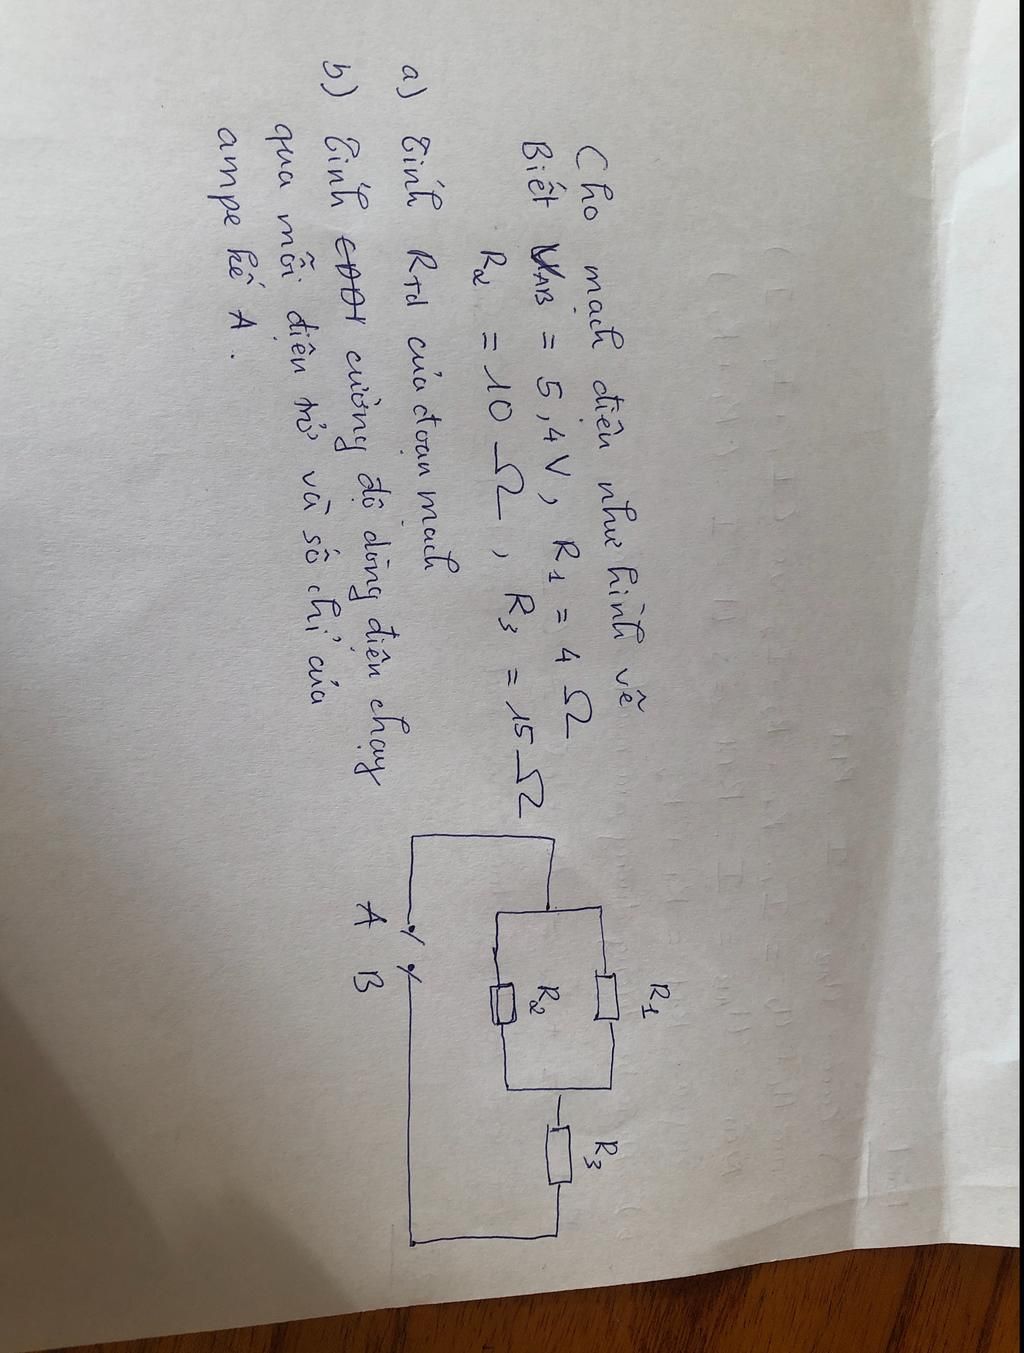 Cho mạch điện như hình vẽ
Biết UAB = 5,4V, R1 = 4 Ω
R2 = 10 Ω, R3 = 15 Ω
a) Tính RTd của đoạn mạch
b) Tính CĐDĐ cường độ dòng điện chạy
qua mỗi điện trở và số chỉ của
ampe kế A.
R1
R2
R3
A B